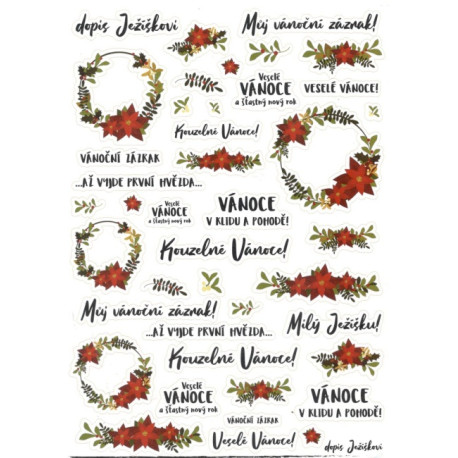 dopis Ježíškovi
Můj vánoční zázrak!
Veselé
VÁNOCE
a šťastný nový rok
VESELÉ VÁNOCE!
Kouzelné Vánoce!
VÁNOČNÍ ZÁZRAK
...AŽ VYJDE PRVNÍ HVĚZDA...
Veselé
VÁNOCE
a šťastný nový rok
VÁNOCE
V KLIDU A POHODĚ!
Kouzelné Vánoce!
Můj vánoční zázrak!
...AŽ VYJDE PRVNÍ HVĚZDA...
Milý Ježíšku!
Kouzelné Vánoce!
Veselé
VÁNOCE
a šťastný nový rok
VÁNOCE
V KLIDU A POHODĚ!
VÁNOČNÍ ZÁZRAK
Veselé Vánoce!
dopis Ježíškovi